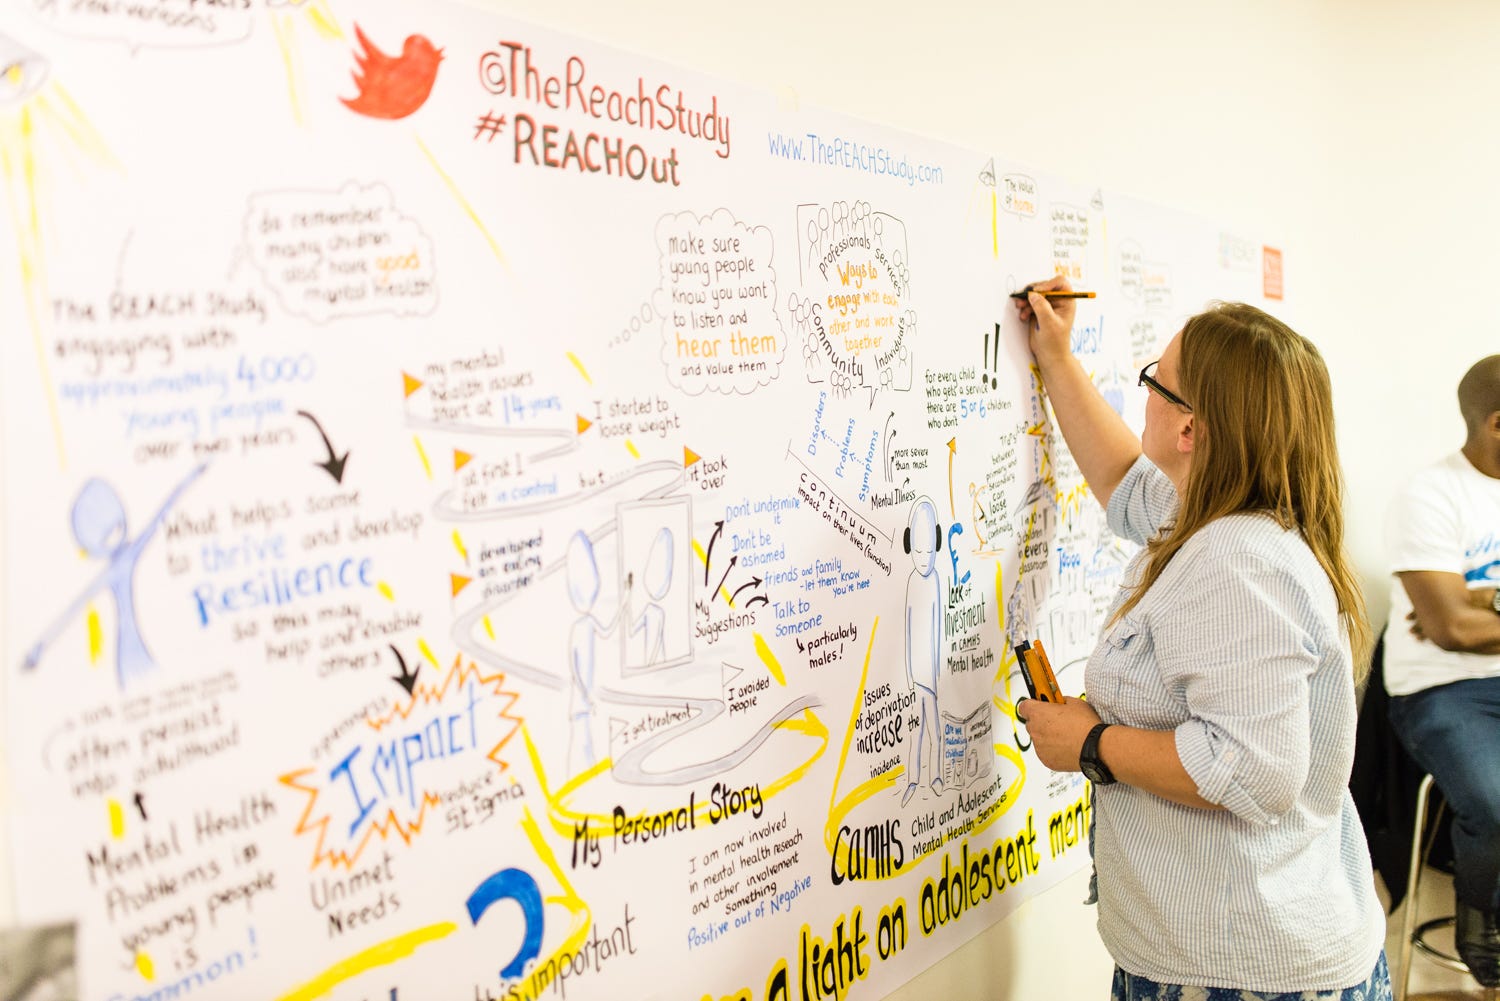 interventions
@TheReachStudy
#REACHOut
www.TheREACHStudy.com
do remember
many children
also have good
mental health
The REACH Study
engaging with
approximately 4000
Young people
over two years
What helps some
to thrive and develop
Resilience
so this may
help and enable
others
often persist
into adulthood
Mental Health
Problems in
young people
is
Common!
openness
Impact
reduce
stigma
Unmet
Needs
this important
my mental
health issues
start at 14 years
I started to
loose weight
at first I
felt in control
but ......
it took
over
I developed
an eating
disorder
I got treatment
I avoided
people
My
Suggestions
Don't undermine
it
Don't be
ashamed
friends and family
- let them know
you're here'
Talk to
Someone
particularly
males!
My Personal Story
I am now involved
in mental health reseach
and other involvement
something
Positive out of Negative
make sure
young people
know you want
to listen and
hear them
and value them
professionals services
Community Individuals
Ways to
engage with each
other and work
together
Disorders
Problems
Symptoms
Continuum
impact on their lives (function)
more severe
than most
Mental Illness
for every child
who gets a service
there are
5 or 6 children
who don't
!!
£
Lack of
Investment
in CAMHS
Mental health
issues
of deprivation
increase the
incidence
CAMHS
Child and Adolescent
Mental Health Services
light on adolescent ment
The value
of home
What we
in schools
Transition
between
primary and
secondary
can
loose
time and
continuity
3 children
in every
classroom
sues!